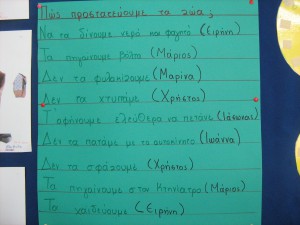 Πώς προστατεύουμε τα ζώα;
Να τα δίνουμε νερό και φαγητό (Ειρήνη)
Τα πηγαίνουμε βόλτα (Μάριος)
Δεν τα φυλακίζουμε (Μαρίνα)
Δεν τα χτυπάμε (Χρήστος)
Τ'αφήνουμε ελεύθερα να πετάνε (Ιάσονας)
Δεν τα πατάμε με το αυτοκίνητο (Ιωάννα)
Δεν τα σφάζουμε (Χρήστος)
Τα πηγαίνουμε στον Κτηνίατρο (Μάριος)
Τα χαϊδεύουμε (Ειρήνη)